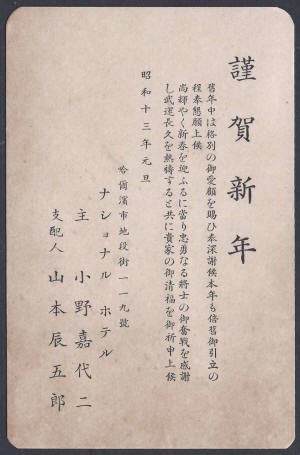 謹賀新年
舊年中は格別の御愛顧を賜ひ奉深謝候本年も倍舊御引立の
程奉懇願上候
尚輝やく新春を迎ふるに當り忠勇なる將士の御奮戰を感謝
し武運長久を熱禱すると共に貴家の御清福を御祈申上候
昭和十三年元旦
哈爾濱市地段街一一九號
ナショナル ホテル
主 小野嘉代二
支配人 山本辰五郎